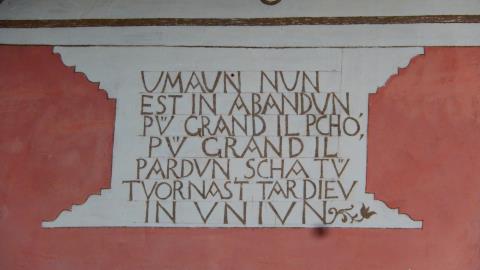 UMAUN NUN
EST IN ABANDUN,
PÜ GRAND IL PCHÒ,
PÜ GRAND IL
PARDUN, SCHA TÜ
TUORNAST TAR DIEU
IN UNIUN